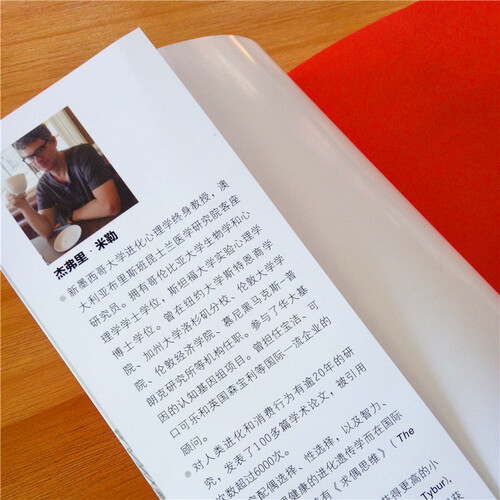 杰弗里 米勒
新墨西哥大学进化心理学终身教授，澳
大利亚布里斯班昆士兰医学研究院客座
研究员。拥有哥伦比亚大学生物学和心
理学学士学位，斯坦福大学实验心理学
博士学位。曾在纽约大学斯特恩商学
院、加州大学洛杉矶分校、伦敦大学学
院、伦敦经济学院、慕尼黑马克斯-普
朗克研究所等机构任职。参与了华大基
因的认知基因组项目。曾担任宝洁、可
口可乐和英国森宝利等国际一流企业的
顾问。
对人类进化和消费行为有逾20年的研
究，发表了100多篇学术论文，被引用
次数超过6000次。
配偶选择、性选择，以及智力、
健康的进化遗传学而在国际
有《求偶思维》（The
获得更高的小
ybur）、